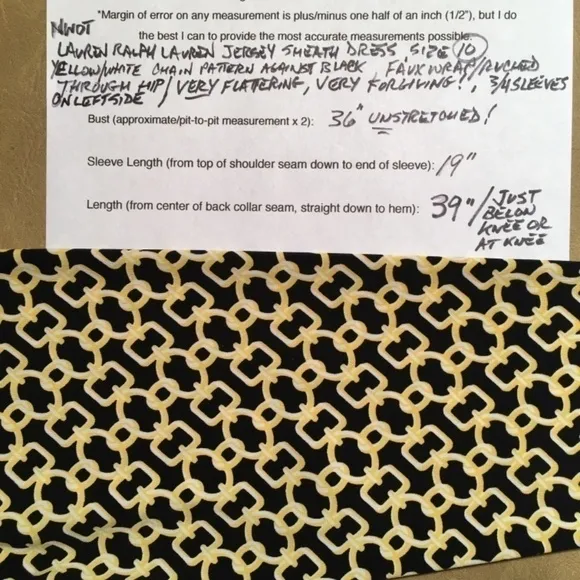 *Margin of error on any measurement is plus/minus one half of an inch (1/2"), but I do
NWOT
the best I can to provide the most accurate measurements possible.
LAUREN RALPH LAUREN JERSEY SHEATH DRESS SIZE 10
YELLOW/WHITE CHAIN PATTERN AGAINST BLACK, FAUX WRAP/RUCHED
THROUGH HIP/VERY FLATTERING, VERY FORGIVING!, 3/4 SLEEVES
ON LEFT SIDE
Bust (approximate/pit-to-pit measurement x 2): 36" UNSTRETCHED!
Sleeve Length (from top of shoulder seam down to end of sleeve): 19"
Length (from center of back collar seam, straight down to hem): 39"/JUST
BELOW
KNEE OR
AT KNEE